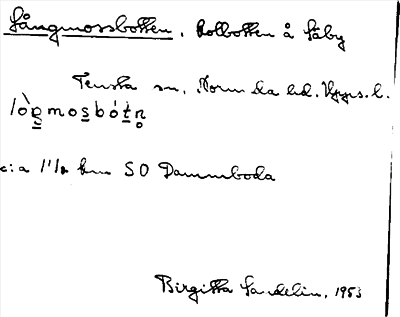 Långmossbotten, Kolbotten å Säby
Tensta sn, Norunda hd. Upps. l.
lòŋmosbótn̥
c:a 1 1/2 km SO Dammboda
Birgitta Sandelin, 1953